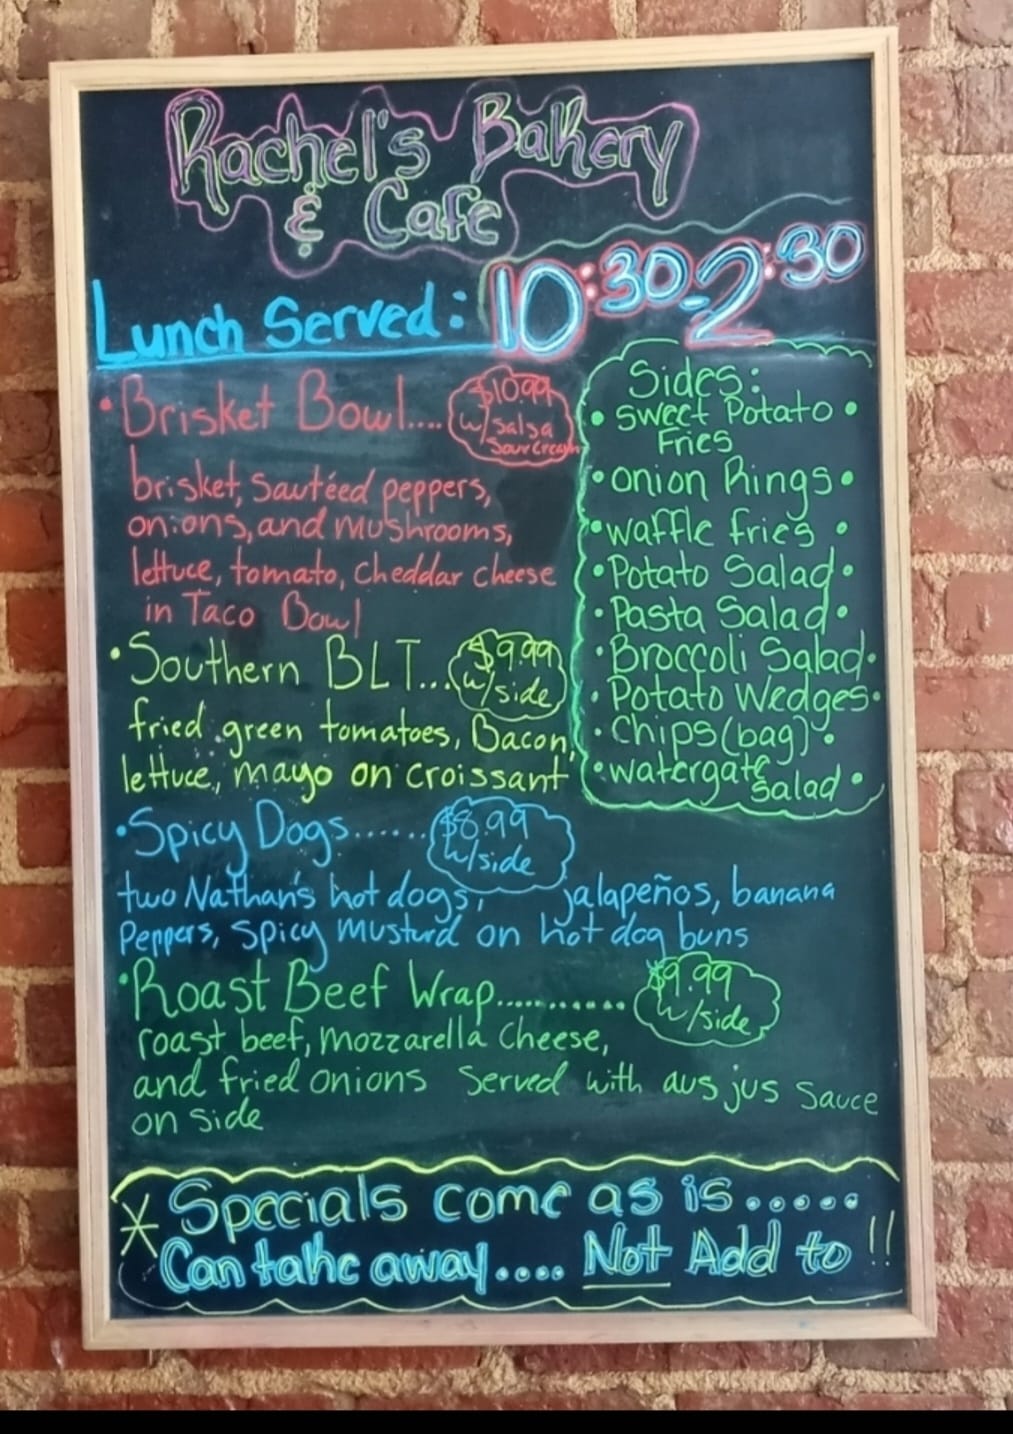 Rachel's Bakery
& Cafe
Lunch Served: 10:30-2:30
• Brisket Bowl....
$10.99
w/salsa
sour cream
brisket, sautéed peppers,
onions, and mushrooms,
lettuce, tomato, cheddar cheese
in Taco Bowl
• Southern BLT...
$9.99
w/side
fried green tomatoes, Bacon,
lettuce, mayo on croissant
Sides:
• sweet Potato •
Fries
• onion Rings •
• waffle fries •
• Potato Salad •
• Pasta Salad •
• Broccoli Salad •
• Potato Wedges •
• Chips (bag) •
• watergate
salad •
• Spicy Dogs......
$8.99
w/side
two Nathan's hot dogs, jalapeños, banana
Peppers, spicy musturd on hot dog buns
• Roast Beef Wrap...........
$9.99
w/side
roast beef, mozzarella cheese,
and fried onions served with aus jus sauce
on side
* Specials come as is.....
Can take away.... Not Add to!!